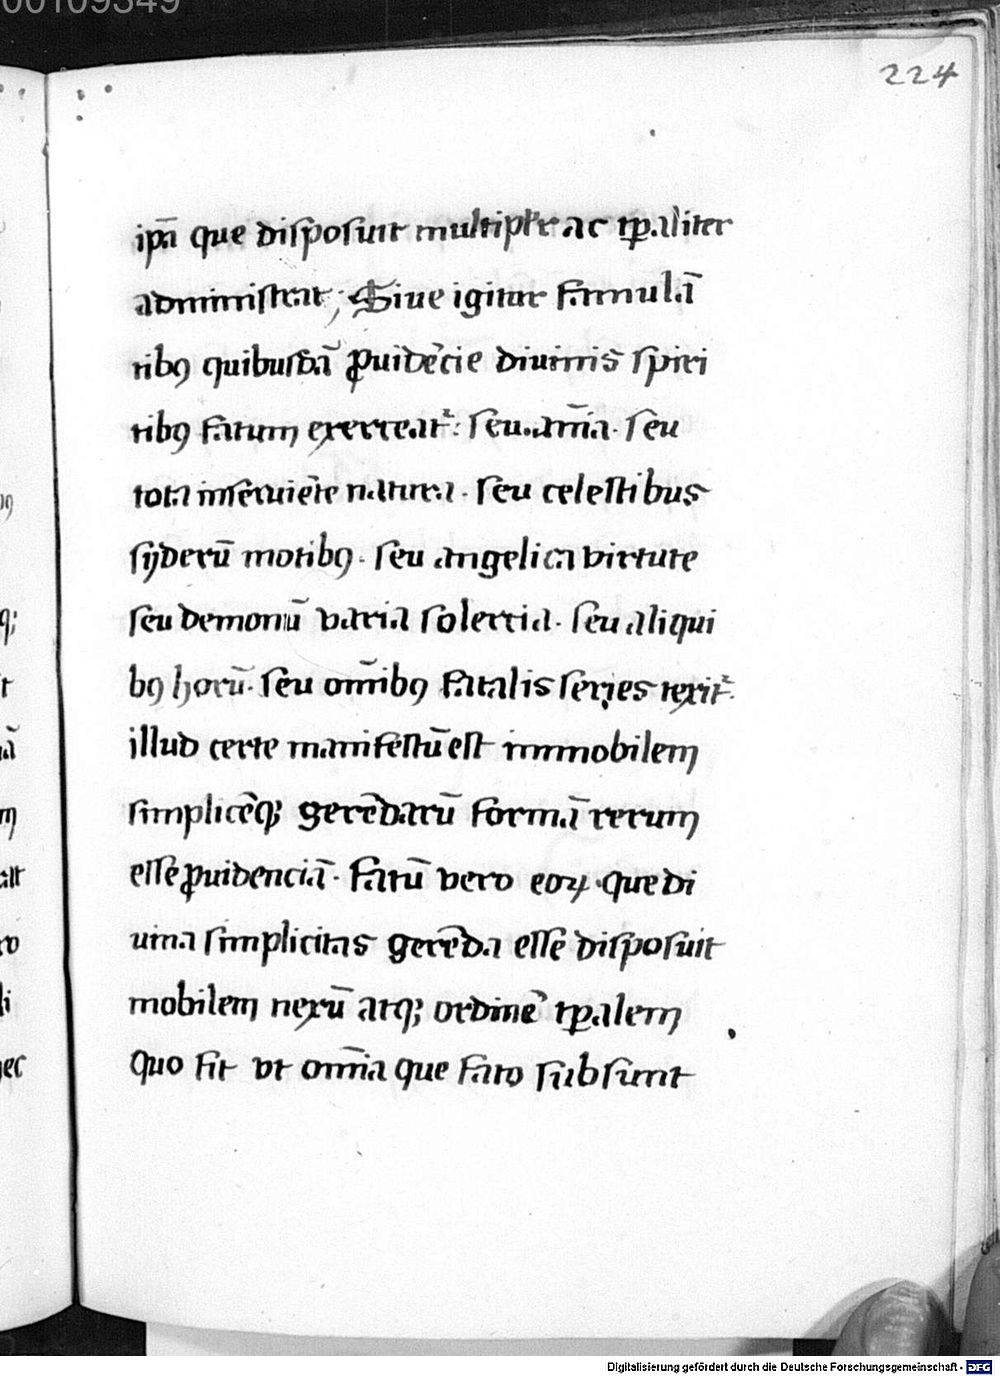 00109349
224
ipā que disposuit multiplr̄ ac tꝑaliter
administrat; Siue igitur famulā
tibꝯ quibusdā ꝓuidēcie diuinis spiri
tibꝯ fatum exerceat᷑: seu aīa · seu
tota inseruiēte natura · seu celestibus
syderū motibꝯ · seu angelica virtute
seu demonū varia solertia · seu aliqui
bꝯ horū · seu om̄ibꝯ fatalis series texit᷑.
illud certe manifestū est immobilem
simplicēq; gerēdarū formā rerum
esse ꝓuidenciā · Fatū vero eoꝝ · que di
uina simplicitas gerēda esse disposuit
mobilem nexū atq; ordinē tꝑalem
quo fit vt om̄ia que fato subsunt
Digitalisierung gefördert durch die Deutsche Forschungsgemeinschaft - DFG